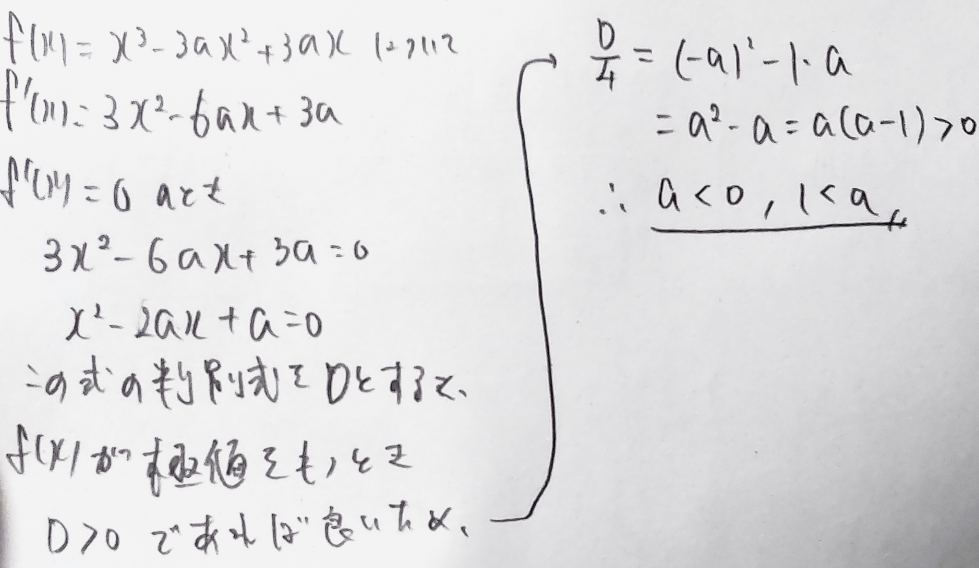 f(x) = x³-3ax²+3ax について
f'(x)=3x²-6ax+3a
f'(x)=0 のとき
3x²-6ax+3a=0
x²-2ax+a=0
この式の判別式をDとすると、
f(x)が極値をもつとき
D>0 であれば良いため、
D/4 = (-a)²-1·a
= a²-a = a(a-1)>0
∴ a<0, 1<a